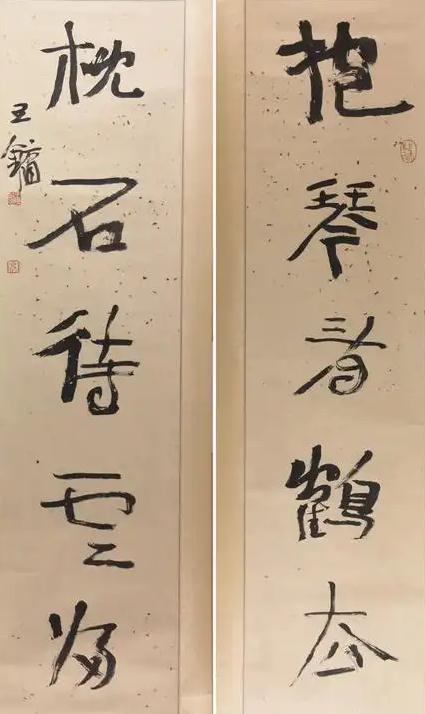 抱琴看鶴去
枕石待雲歸
王鏞